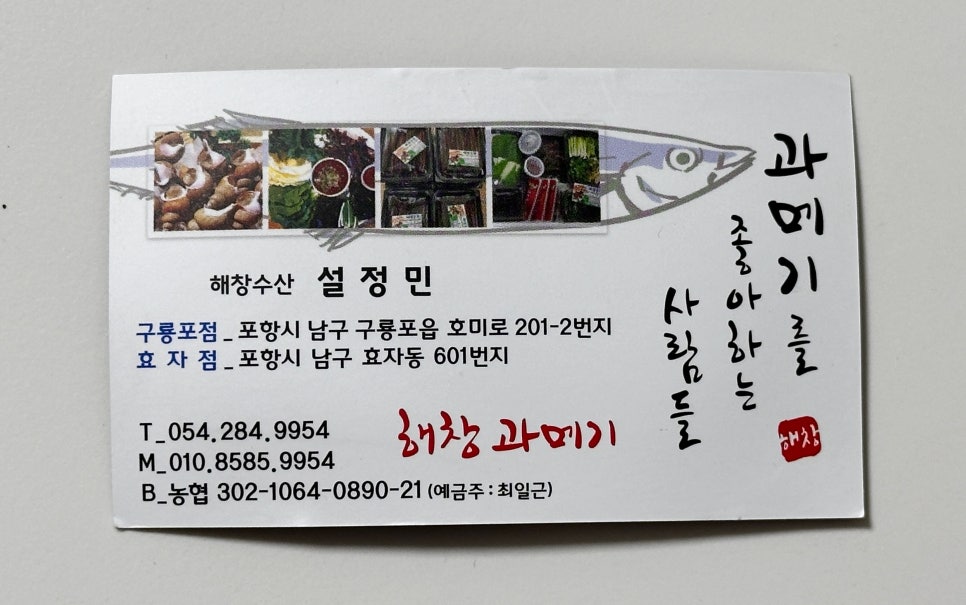 과메기를
좋아하는
사람들
해창
해창수산 설정민
구룡포점_포항시 남구 구룡포읍 호미로 201-2번지
효 자 점_포항시 남구 효자동 601번지
T_054.284.9954
M_010.8585.9954
B_농협 302-1064-0890-21 (예금주 : 최일근)
해창 과메기